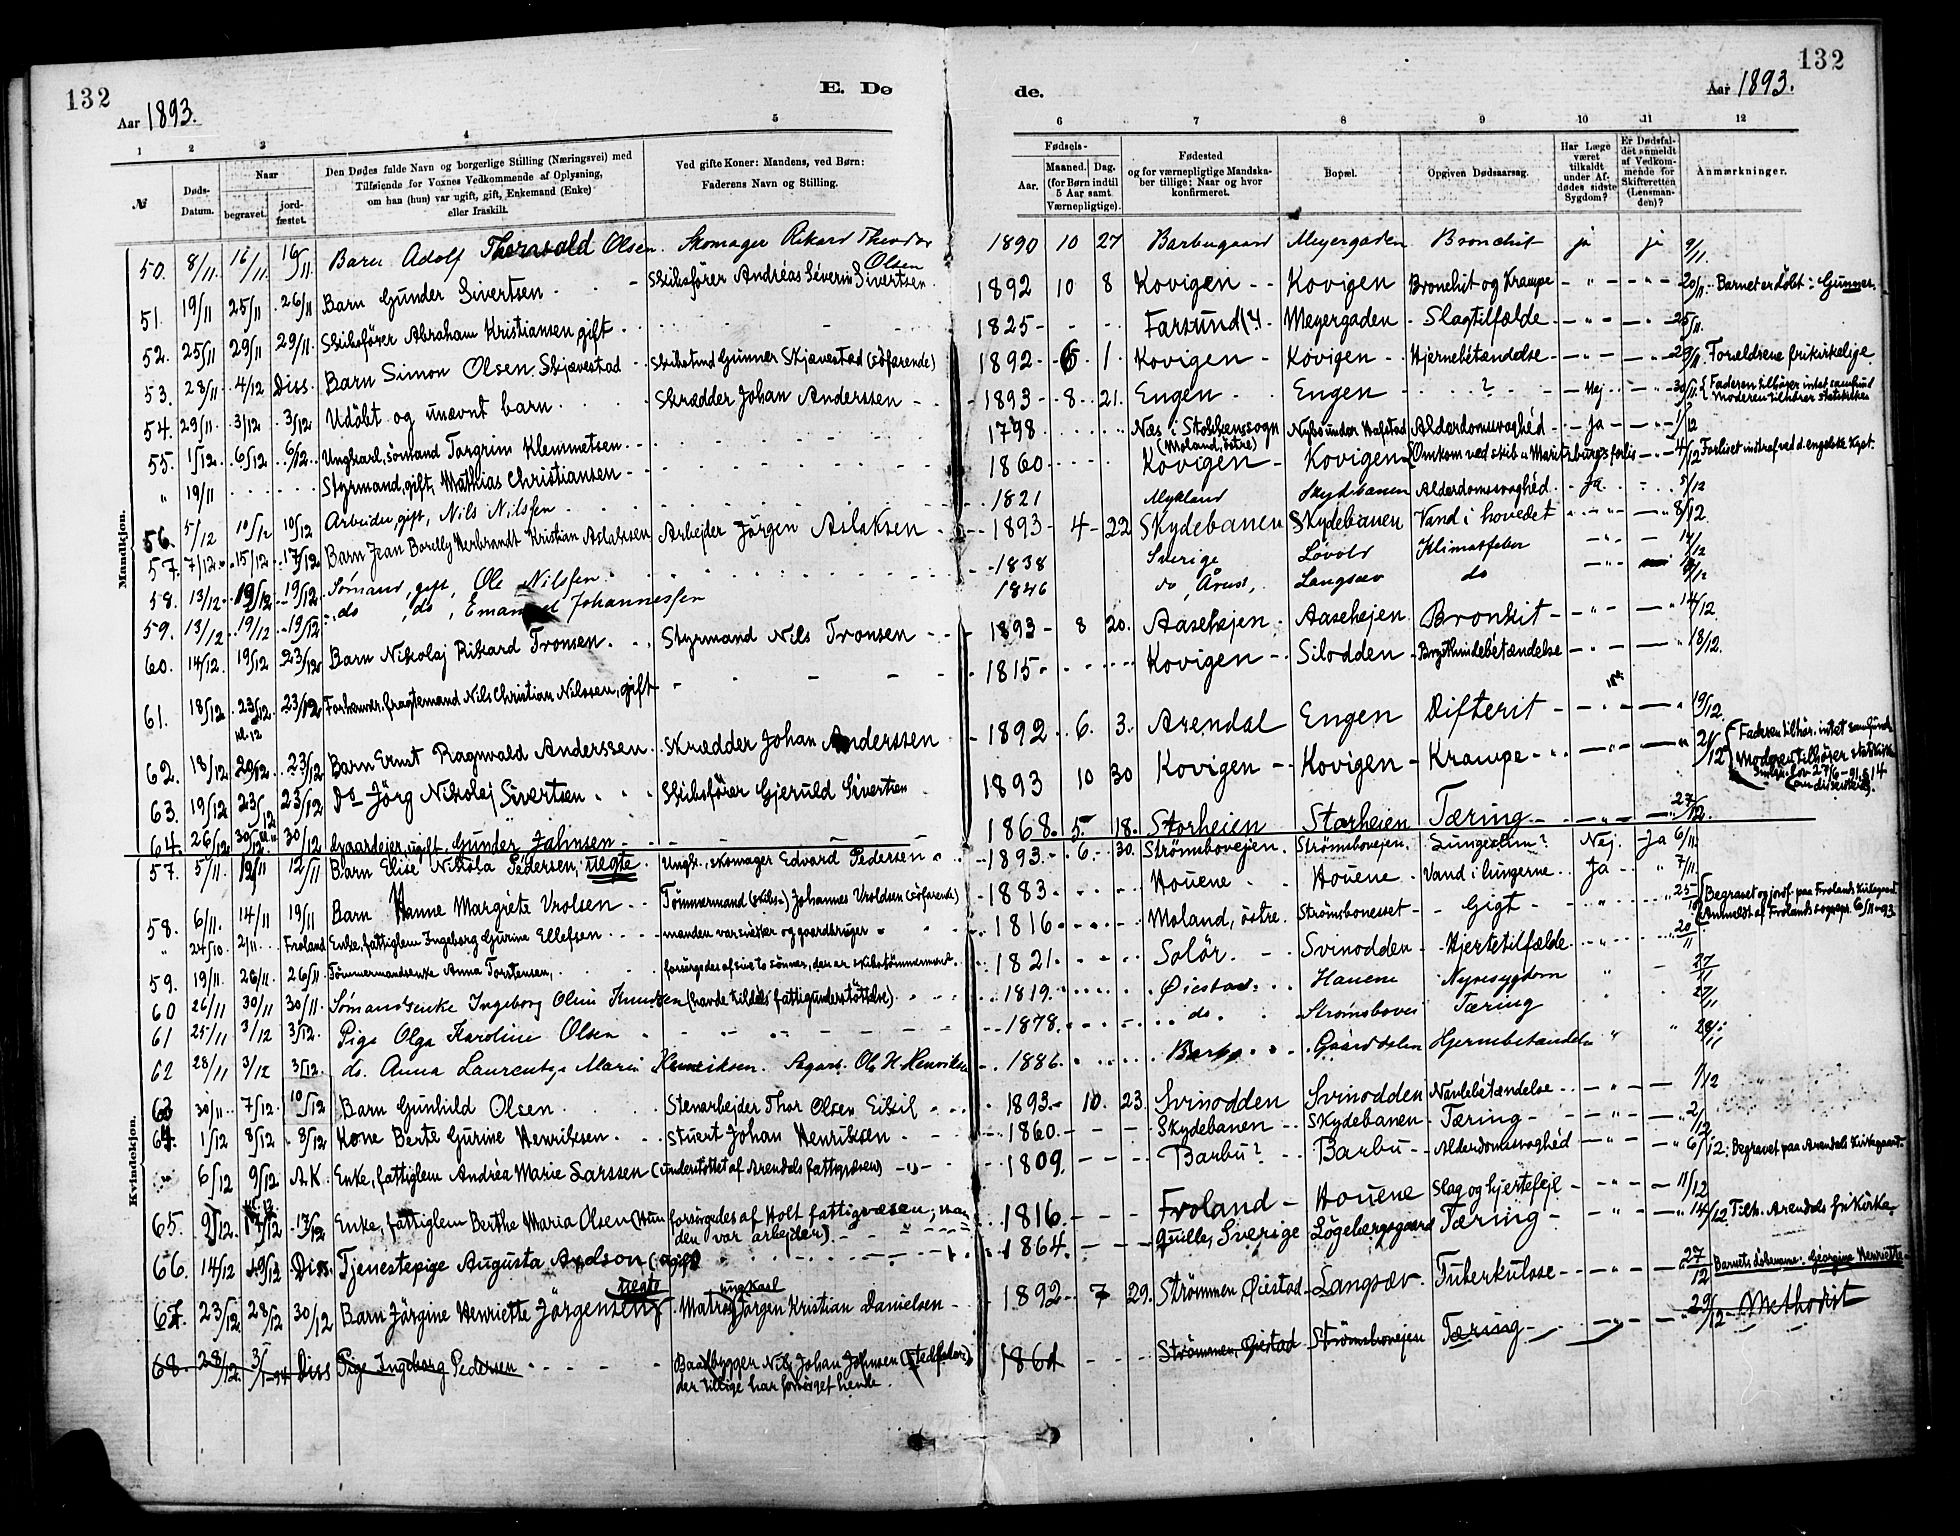 132
Aar 1893.
E. Dø
de.
132
Aar 1893.
1 2 3 4 5 6 7 8 9 10 11 12
№
Døds-Datum.
Naar
begravet.
jord-fæstet.
Den Dødes fulde Navn og borgerlige Stilling (Næringsvei) med
Tilføiende for Voxnes Vedkommende af Oplysning,
om han (hun) var ugift, gift, Enkemand (Enke)
eller fraskilt.
Ved gifte Koner: Mandens, ved Børn:
Faderens Navn og Stilling.
Fødsels-
Aar.
Maaned. Dag.
(for Børn indtil
5 Aar samt
Værnepligtige).
Fødested
og for værnepligtige Mandska-
ber tillige: Naar og hvor
konfirmeret.
Bopæl.
Opgiven Dødsaarsag.
Har Læge
været
tilkaldt
under Af-
dødes sidste
Sygdom?
Er Dødsfal-
det anmeldt
af Vedkom-
mende for
Skifteretten
(Lensman-
den)?
Anmærkninger.
Mandkjøn.
50. 8/11 16/11 16/11 Barn Adolf Thorvald Olsen. Skomager Rikard Theodor Olsen 1890 10 27 Barbugaard Meyergaden Bronchit ja ja 9/11
51. 19/11 25/11 26/11 Barn Gunder Sivertsen Skibsfører Andréas Séverin Sivertsen 1892 10 8 Kovigen Kovigen Bronchit og Krampe - " - - " 20/11 Barnet er döbt: Gunner.
52. 25/11 29/11 29/11 Skibsfører Abraham Kristiansen, gift 1825 Farsund (?) Meyergaden Slagtilfælde - " - - " 25/11
53. 28/11 4/12 Diss. Barn Simon Olsen Skjævestad Skibstmd Gunner Skjævestad (söfarende) 1892 6 1 Kovigen Kovigen Hjernebétændelse - " - - " 29/11 Forældrene frikirkelige
54. 29/11 3/12 3/12 Udöbt og unævnt barn Skrædder Johan Anderssen 1893 8 21. Engen Engen ? Nej " 30/11 { Faderen tilhører intet samfund
Moderen tilhører statskirken
55. 1/12 6/12 6/12 Ungkarl, sömand Torgrim Klemmetsen 1798 Næs i Stokkensogn (Moland, östre) Nybö under Hafstad Alderdomssvaghéd Ja " 1/12
" 19/11 Styrmand, gift, Mathias Christiansen 1860 Kovigen Kovigen Omkom ved skib "Maritzburgs" forlis " 4/12 Forliset indtraf ved d. engelske Kyst.
56. 5/12 10/12 10/12 Arbeider, gift, Nils Nilsen 1821 Mykland Skydebanen Alderdomssvaghéd Ja 5/12
57. 7/12 15/12 17/12 Barn Jean Borelly Herbrandt Kristian Aslaksen Arbejder Jörgen Aslaksen 1893 4 22 Skydebanen Skydebanen Vand i hovedet - " - 8/12
58. 13/12 19/12 19/12 Sømand, gift, Ole Nilsen 1838 Sverige Løvold Klimatfeber - " - 14/12
59. 13/12 19/12 19/12 do, do, Emanuel Johannessen 1846 do, Långsæv do - " -
60. 14/12 19/12 23/12 Barn Nikolaj Rikard Tronsen. Styrmand Nils Tronsen 1893 8 20. Aasehejen Aasehejen Bronkit - " - " 14/12.
61. 18/12 23/12 kl. 12 23/12 Forhenvær. fragtemand Nils Christian Nilssen, gift 1815 Kovigen Silodden Brysthindebétændelse - " - " 18/12.
62. 18/12 20/12 23/12 Barn Ernst Ragnvald Anderssen Skrædder Johan Anderssen 1892 6. 3. Arendal Engen Difterit - " - " 19/12 { Faderen tilhør. intet samfund
Moderen tilhører statskirken
63. 19/12 23/12 23/12 Do Jörg Nikolej Sivertsen Skibsfører Gjeruld Sivertsen 1893 10 30 Kovigen Kovigen Krampe - " - " 21/12
64. 26/12 30/12 30/12 Gaardejer, ugift, Gunder Jahnsen 1868. 5 18. Storheien Storheien Tæring - " - " 27/12
Kvindekjøn.
57. 5/11 12/11 12/11 Barn Elise Nikola Pedersen, uegte Ungk., skomager Edvard Pedersen 1893 6 30. Strömsbovejen Strömsbovejen Nej Ja 6/11
58. 6/11 14/11 19/11 Barn Hanne Margréte Vrolsen Tömmermand (skibs-) Johannes Vroldsen (söfarende) 1883 Houene Houene Vand i lungerne Ja " 7/11
" 24/10 2/11 Froland Enke, fattiglem Ingeborg Gurine Ellefsen manden var snekker og gaardbruger 1816 Moland, östre. Strömsbonesset Gigt " " 25/10 { Begravet og jordf. paa Frolands Kirkegaard.
Anmeldt af Frolands sogneps. 6/11-93.
59. 19/11 26/11 26/11 Tömmermandsenke Anna Torstensen, forsörgedes af sine to sönner, den er skibstömmermænd. 1821. Solör Svinodden Hjertetilfælde - " - " 20/11
60 26/11 30/11 30/11 Sømandsenke Ingeborg Oline Knudsen (havde tildels fattigunderstöttelse). 1819. Øiestad Hauene Nyresygdom " 27/11
61 25/11 3/12 3/12. Pige Olga Karoline Olsen 1878. do. Strømsbovei Tæring " 27/11
62 28/11 3/12 3/12. do. Anna Laurentze Marie Henriksen. Sagarb. Ole N. Henriksen 1886. Barbo Gaarddalen Hjernebetændelse " " 28/11
63 30/11 7/12 10/12 Barn Gunhild Olsen Stenarbejder Thor Olsen Eikil 1893 10. 23. Svinodden Svinodden Navlebétændelse " 1/12
64. 1/12 8/12 8/12 Kone Berte Gurine Henriksen Stuert Johan Henriksen 1860 Skydebanen Skydebanen Tæring - " - " 2/12
" 6/12 9/12 A.K. Enke, fattiglem Andréa Marie Larssen (understöttet af Arendals fattigvæsen) 1809 Barbu? Barbu Alderdomssvaghéd - " - " 6/12: Begravet paa Arendals Kirkegaard.
65. 9/12 17/12 17/12 Enke, fattiglem Berthe Maria Olsen (Hun forsörgedes af Holt fattigvæsen; man
den var arbejder) 1816 Froland Houene Slag og hjertefejl - " - 11/12
66. 14/12 19/12 Diss. Tjenestepige Augusta Axelson (ugift) 1864. Gulle, Sverige Lögebergsgaard Tæring - " - " 14/12 Tilh. Arendals frikirke.
67. 23/12 28/12 30/12 Barn Jörgine Henriette Jörgensen uegte Matros ungkarl Jörgen Kristian Danielsen 1892 7 29. Strömmen, Øiestad Langsæv Tuberkulose - " - " 27/12 Barnets döbenavn: Georgine Henriette
68. 28/12 3/1-94 Diss Pige Ingeborg Pedersen Baadbygger Nils Johan Johnsen (stedfader)
der tillige har forsörget hende. 1861 Strömmen, Øiestad Strömsbovejen Tæring - " - " 29/12 Methodist